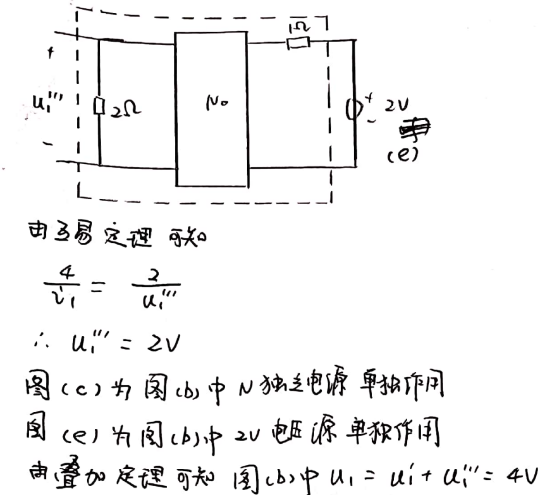 1Ω
+
u₁'''
-
2Ω
N₀
+
-
2V
(e)
由互易定理可知
4/i₁ = 2/u₁'''
∴ u₁''' = 2V
图(c)为图(b)中N独立电源单独作用
图(e)为图(b)中2V电压源单独作用
由叠加定理可知 图(b)中 u₁ = u₁' + u₁''' = 4V